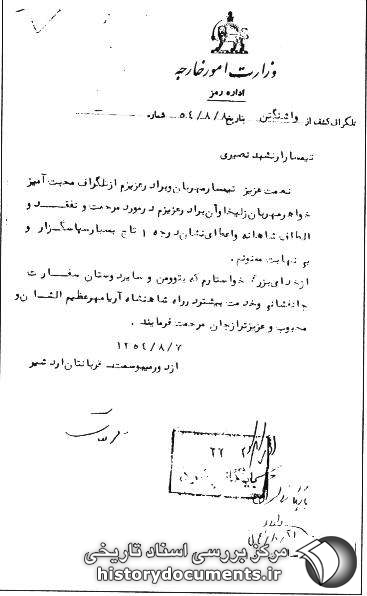 وزارت امور خارجه
اداره رمز
تلگراف کشف از واشنگتن بتاریخ ۵۴/۸/۸ شماره
تیمسار ارتشبد نصیری
نعمت عزیز تیمسار مهربان و برادر عزیزم از تلگراف محبت آمیز
خواهر مهربان زلیخا و آن برادر عزیزم در مورد مرحمت و تفقد و
الطاف شاهانه و اعطای نشان درجه ۱ تاج بسیار سپاسگزار و
بی نهایت ممنونم.
از خدای بزرگ خواستارم که بتو و من و سایر دوستان سعادت
جانفشانی و خدمت بیشتر در راه شاهنشاه آریامهر عظیم الشان و
محبوب و عزیزتر از جان مرحمت فرمایند.
۱۳۵۴/۸/۷
از دور میبوسمت قربانتان اردشیر
۲۲
بایگانی شود
۵۴/۸/۲۱
مرکز بررسی اسناد تاریخی
historydocuments.ir